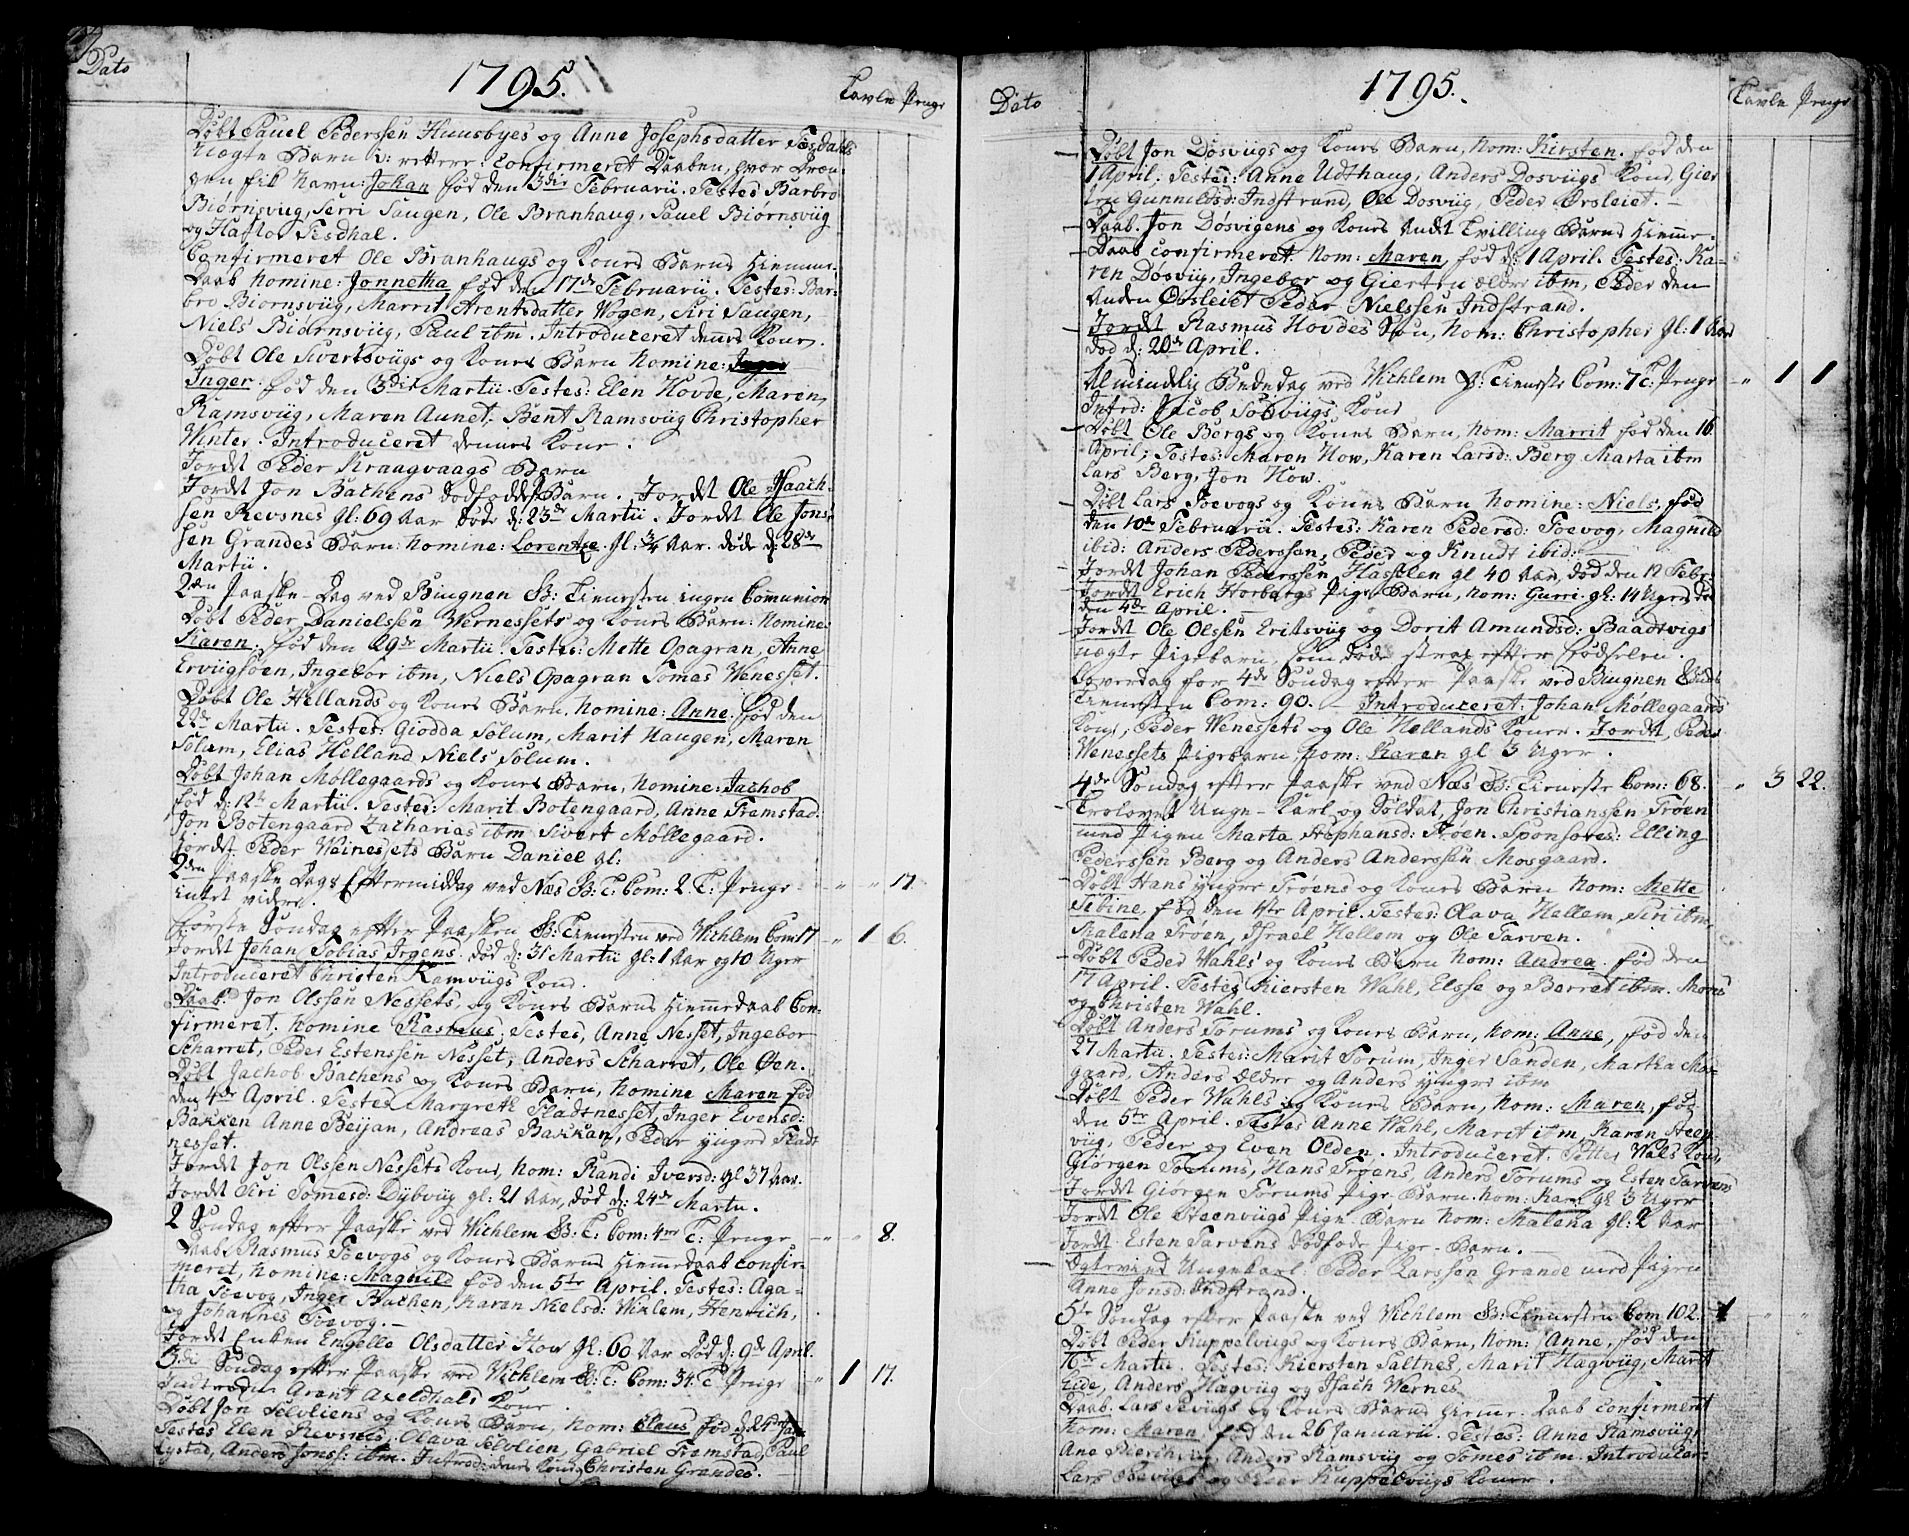 Dato
1795.
Tavle Penge
Døbt Pauel Pederssen Huusbyes og Anne Josephsdatter Tesdahls
uægte Barn v: rettere: Confirmeret Daaben, hvor Dren-
gen fik Navn: Johan fød den 3die Februarii. Testes Barbro
Biørnsviig, Serri Saugen, Ole Branhaug, Pauel Biørnsviig
og Haftor Tesdhal.
Confirmeret Ole Branhaugs og Kones Barns Hiemme-
Daab Nomine: Jonnetha fød den 17de Februarii. Testes: Bar-
bro Biørnsviig, Marrit Arentsdatter Vogen, Siri Saugen,
Niels Biørnsviig, Paul ibm. Introduceret dennes Kone.
Døbt Ole Sivertsviigs og Kones Barn Nomine:
Inger. fød den 3die Martii. Testes: Elen Hovde, Maren
Ramsviig, Maren Aunet, Bent Ramsviig Christopher
Winter. Introduceret dennes Kone.
Jordt Peder Kraagvaags Barn
Jordt Jon Bachens dødfødde Barn. Jordt Ole Isach-
sen Revsnes gl: 69 Aar døde d: 23de Martii. Jordt Ole Jons-
sen Grandes Barn: Nomine: Lorentze. gl: 3/4 Aar. døde d: 28de
Martii.
2den Paaske-Dag ved Bugnen B: Tienesten ingen Communion
Døbt Peder Danielssen Wernessets og Kones Barn: Nomine:
Karen. fød den 29de Martii. Testes: Mette Opagran, Anne
Erviigsøen, Ingebor ibm, Niels Opagran Tomas Wenesset.
Døbt Ole Hellands og Kones Barn. Nomine: Anne: fød den
22de Martii. Testes: Giødda Solum, Marit Haugen, Maren
Solum, Elias Helland Niels Solum.
Døbt Johan Møllegaards og Kones Barn, Nomine: Jachob
fød d: 12te Martii. Testes: Marit Botengaard, Anne Framstad.
Jon Botengaard Zacharias ibm Sivert Møllegaard.
Jordt Peder Weinessets Barn Daniel gl:
2den Paaske Dags Eftermiddag ved Næs B: T: Com: 2 T: Penge - " - " 17.
intet videre.
første Søndag efter Paasken B: Tienesten ved Vichlem Com 17 - " 1 6.
Jordt Johan Tobias Irgens død d: 31 Martii gl: 1 Aar og 10 Uger
Introduceret Christen Ramviigs Kone.
Daab. Jon Olssen Nessets og Kones Barns Hiemmedaab Con-
firmeret. Nomine Rasmus, Testes, Anne Nesset, Ingebor
Scharret, Peder Estenssen Nesset, Anders Scharret, Ole Øen.
Døbt Jachob Bachens og Kones Barn, Nomine Maren fød
den 4de April. Testes Margreth Fladtnesset, Inger Evensd:
Bakken Anne Beijan, Andreas Bakkan, Peder yngre Fladt
nesset.
Jordt Jon Olssen Nessets Kone, Nom: Randi Iversd: gl 37 Aar.
Jordt Siri Tomesd: Dybviig gl: 21 Aar, død d: 24de Martii.
2 Søndag efter Paaske ved Vichlem B: T: Com: 4re T: Penge - " - " 8.
Daab. Rasmus Toevogs og Kones Barns Hiemmedaab confir-
meret, Nomine: Magnild fød den 5te April. Testes: Aga-
tha Toevog, Inger Bachen, Karen Nielsd: Viklem, Henrich,
og Johannes Toevog.-
Jordt Enken Engelle Olsdatter How gl: 60 Aar Død d: 9de April.
3die Søndag efter Paaske ved Vichlem B: T: Com: 34. T: Penge " 1 17.
Arent Axeldhals Kone.
Døbt Jon Selvliens og Kones Barn, Nom: Claus fød d: 24de
Testes Elen Revsnes, Olava Selvlien, Gabriel Framstad, Paul
Lystad, Anders Jonss: ibm. Introd: denes Kone Christen Grandes.
Dato
1795.
Tavle Penge
Døbt Jon Døsviigs og Kones Barn, Nom: Kirsten. fød den
1 April; Testes: Anne Udthaug, Anders Dosviigs Kone, Gier
tru Gunnildsd: Indstrand, Ole Dosviig, Peder Ørsleiet.-
Daab. Jon Døsvigens og Kones Andet Tvilling Barns Hiemme-
Daab confirmeret Nom: Maren, fød d: 1 April. Testes: Ka-
ren Døsviig, Ingebor og Giertru ældre ibm, Peder den
Anden Ørsleiet Peder Nielssen Indstrand.
Jordt Rasmus Hovdes Søn, Nom: Christopher gl: 1 Aar
død d: 20de April.
Almindelig Bededag ved Vichlem B: Tieneste Com: 7 T: Penge - " 1 1
Intrd: Jacob Sobviigs Kone
Døbt Ole Bergs og Kones Barn, Nom: Marrit fød den 16.
April; Testes: Maren How, Karen Larsd: Berg Marta ibm
Lars Berg, Jon How.
Døbt Lars Toevogs og Kones Barn Nomine: Niels, fød
den 10de Februarii. Testes: Karen Pedersd: Toevog, Magnild
ibid: Anders Pederssen, Peder og Knudt ibid:
Jordt Johan Pederssen Hasselen gl 40 Aar, død den 12 Febr:
Jordt Erich Horbergs Pige Barn, Nom: Gurri gl: 14 Uger død
den 4de April.
Jordt Ole Olssen Eritsviig og Dorit Amundsd: Baadtvigs
uægte Pigebarn, som døde strax efter fødselen.
Løverdag før 4de Søndag efter Paaske ved Bugnen
Tienesten Com: 90. - Introduceret: Johan Møllegaards
Kone, Peder Wenessets og Ole Hellands Koner. Jordt, Peder
Wenessets Pigebarn, Nom: Karen gl 3 Uger
4de Søndag efter Paaske ved Næs B: Tieneste Com: 68. - " 3 22.
Trolovet Unge-Karl og Soldat, Jon Christianssen Trøen
med Pigen Marta Stephansd: Trøen. Sponsores: Elling
Pederssen Berg og Anders Anderssen Mosgaard.
Døbt Hans yngre Trøens og Kones Barn Nom: Mette
Sebine, fød den 1ste April. Testes: Olava Hellem, Siri ibm,
Malena Trøen, Israel Hellem og Ole Tarven.
Døbt Peder Wahls og Kones Barn Nom: Andrea. fød den
17 April. Testes Kiersten Wahl, Elsse og Berret ibm. Mons
og Christen Wahl.
Døbt Anders Torums og Kones Barn, Nom: Anne, fød den
27 Martii. Testes: Marit Torum, Inger Sanden, Martha Mos-
gaard, Anders ældre og Anders yngre ibm
Døbt Peder Wahls og Kones Barn, Nom: Maren, fød
den 5te April. Testes Anne Wahl, Marit ibm, Karen Steen
viig, Peder og Even Olden. Introduceret: Petter Wals Kone,
Giørgen Torums, Hans Trøens, Anders Torums og Esten Tarvens
Jordt Giørgen Torums Pige Barn: Nom: Karen gl 3 Uger
Jordt Ole Steenviigs Pige Barn Nom: Malena gl: 2 Aar
Jordt: Esten Tarvens dødføde Pige-Barn.-
Egteviet Ungekarl Peder Larssen Grande med Pigen
Anne Jonsd: Indstrand.
5te Søndag efter Paaske ved Vichlem B: Tienesten Com 102. 1 " "
Døbt Peder Kuppelviigs og Kones Barn, Nom: Anne, fød den
16de Martii. Testes: Kiersten Saltnes, Marit Hagviig, Marit
Eide, Anders Hagviig og Isach Wernes
Daab. Lars Beviigs og Kones Barns Hieme-Daab confirmeret
Nom: Maren, fød den 26 Januarii. Testes: Anne Ramsviig,
Ane, Anders Ramsviig og Tomes ibm. Introducer-
Lars Beviigs og Peder Kuppelviigs Koner.